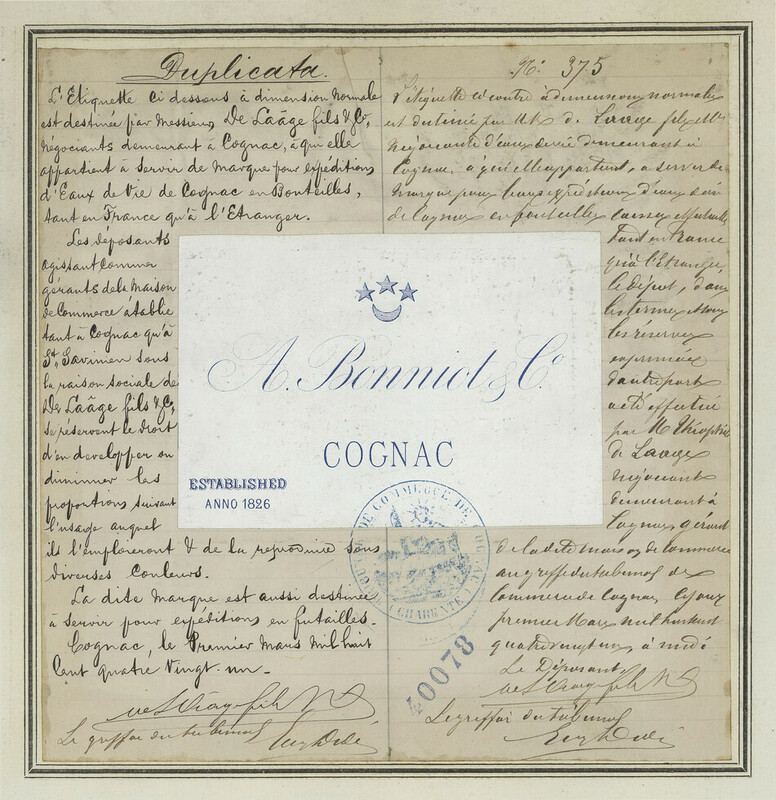 Duplicata.
L'Etiquette ci dessous à dimension normale
est destinée par Messieurs De Laâge fils & Co,
négociants demeurant à Cognac, à qui elle
appartient à servir de marque pour expéditions
d'Eaux de Vie de Cognac en Bouteilles,
tant en France qu'à l'Etranger.
Les déposants
agissant comme
gérants de la Maison
de Commerce établie
tant à Cognac qu'à
St Savinien sous
la raison sociale de
De Laâge fils & Co,
se réservent le droit
d'en developper ou
diminuer les
proportions suivant
l'usage auquel
ils l'emploieront & de la reproduire sous
diverses couleurs.
La dite Marque est aussi destinée
à servir pour expéditions en futailles.
Cognac, le Premier Mars Mil huit
Cent quatre Vingt-un.
Le greffier du tribunal
No 375
L'étiquette ci contre à dimensions normales
est destinée par MM. de Laage fils &
négociants d'eaux de vie demeurant à
Cognac, à qui elle appartient, à servir de
marque pour leurs expéditions d'eaux de vie
de Cognac en bouteilles caisses et futailles
tant en France
qu'à l'Etranger,
le dépot, dans
les termes et sous
les réserves
exprimées
d'autre part
a été effectué
par M Théophile
de Laage
négociant
demeurant à
Cognac gérant
de la dite maison de commerce
au greffe du tribunal de
commerce de Cognac, ce jour
premier Mars mil huit cent
quatre vingt un à midi
Le Déposant
Le greffier du tribunal
A. Bonniot & Co
COGNAC
ESTABLISHED
ANNO 1826
DE COMMERCE DE COGNAC
CHARENTE
40078